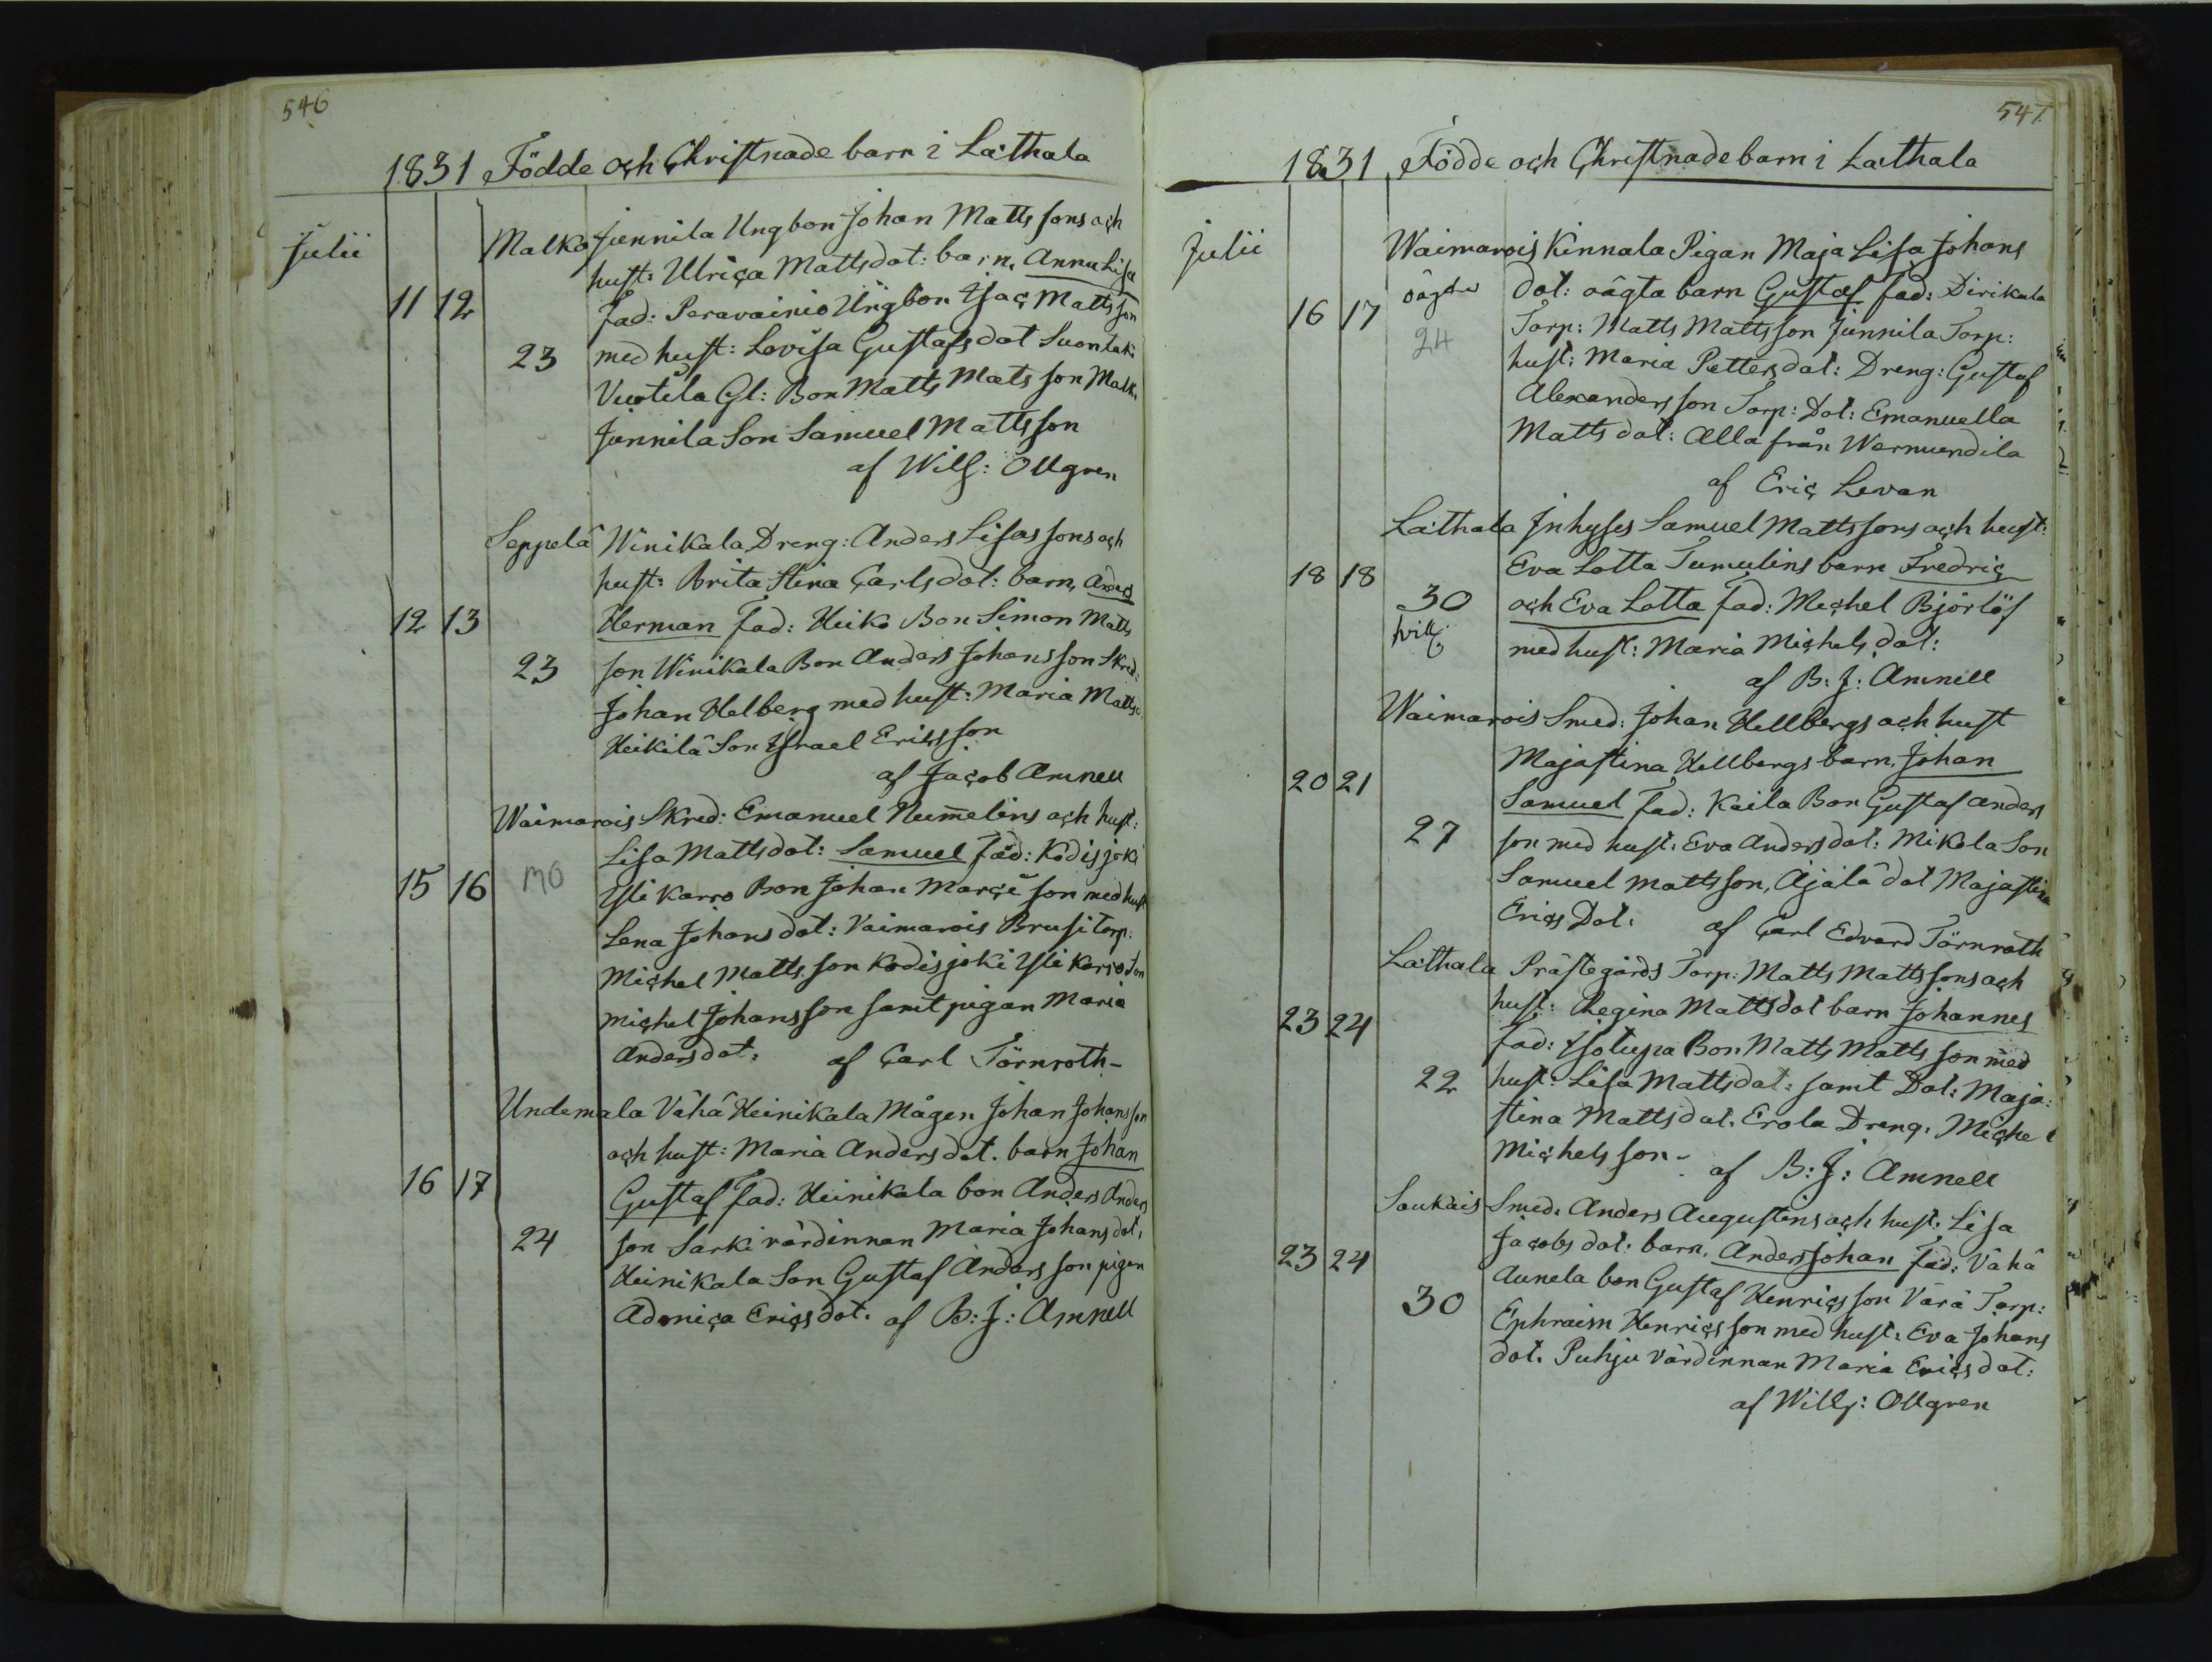 546
1831 Födde och Christnade barn i Laithala
Julii
Malko Junnila Ungbon Johan Matts sons och
hust: Ulrica Mattsdot: barn, Anna Lisa
11 12 Fad: Peravainio Ungbon Isac Matts son
23 med hust: Lovisa Gustafsdot Suontaki
Vuotila Gl: Bon Matts Mats son Malk.
Junnila Son Samuel Matts son
af Willh: Ollgren
Seppelä Winikala Dreng: Anders Lisas sons och
hust: Brita Stina Carlsdot: barn, Anders
12 13 Herman Fad: Heiko Bon Simon Matts
23 son Winikala Bon Anders Johans son Skred:
Johan Helberg med hust: Maria Mattsd.
Heikilä Son Israel Erics son
af Jacob Amnell
Waimarois Skred: Emanuel Num̄elins och hust:
Lisa Mattsdot: Samuel Fad: Kodisjoki
15 16 MO Yli Karro Bon Johan Marci son med hust
Lena Johansdot: Vaimarois Brusi Torp:
Michel Matts son Kodisjoki Yli Karro Son
Michel Johans son samt pigan Maria
Andersdot: af Carl Törnroth -
Undemala Vähä Heinikala Mågen Johan Johans son
och hust: Maria Anders dot. barn Johan
16 17 Gustaf Fad: Heinikala bon Anders Anders
24 son Sarki värdinnan Maria Johans dot,
Heinikala Son Gustaf Anders son pigan
Adamiça Ericsdot. af B: J: Amnell
547
1831 Födde och Christnade barn i Laithala
Julii
Waimarois Kinnala Pigan Maja Lisa Johans
oägta dot: oägta barn Gustaf fad: Dirikala
16 17 24 Torp: Matts Matts son Junnila Torp:
hust: Maria Petters dot: Dreng: Gustaf
Alexanders son Torp: Dot: Emanuella
Matts dot: Alla från Wermundila
af Eric Levan
Laithala Inhyses Samuel Matts sons och hust:
Eva Lotta Tumulins barn Fredric
18 18 30 och Eva Lotta Fad: Michel Björlöf
tvill: med hust: Maria Michels dot:
af B: J: Amnell
Waimarois Smed: Johan Hellbergs och hust
Majastina Hellbergs barn, Johan
20 21 Samuel Fad: Kaila Bon Gustaf Anders
27 son med hust: Eva Andersdot: Mikola Son
Samuel Matts son, Äjälä dot Majastina
Erics Dot. af Carl Edvard Törnroth
Laithala Prästegårds Torp: Matts Matts sons och
hust: Regina Mattsdot barn Johannes
23 24 fad: Isotupa Bon Matts Matts son med
22 hust: Lisa Mattsdot: samt Dot: Maja:
stina Matts dot. Erola Dreng. Michel
Michels son - af B: J: Amnell
Soukais Smed: Anders Augustins och hust: Lisa
Jacobs dot: barn, Anders Johan Fad: Vähä
23 24 Aunela bon Gustaf Henrics son Värä Torp:
30 Ephraim Henrics son med hust: Eva Johans
dot. Puhju värdinnan Maria Erics dot:
af Willh: Ollgren